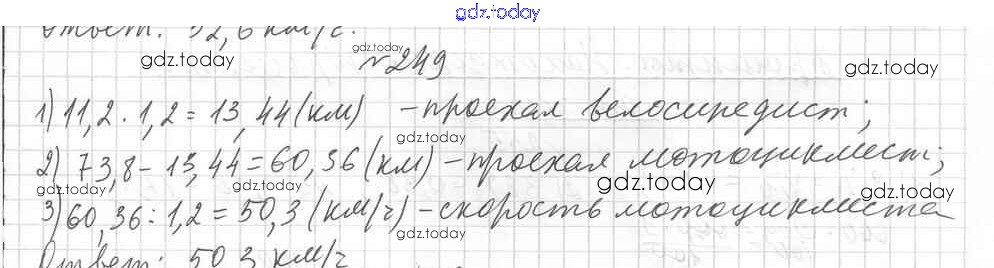 gdz.today
Ответ: 52,6 км/ч.
gdz.today
gdz.today
№249
gdz.today
1) 11,2 · 1,2 = 13,44 (км) - проехал велосипедист;
gdz.today
2) 73,8 - 13,44 = 60,36 (км) - проехал мотоциклист;
gdz.today gdz.today gdz.today gdz.today
3) 60,36 : 1,2 = 50,3 (км/ч) - скорость мотоциклиста
gdz.today
Ответ: 50,3 км/ч